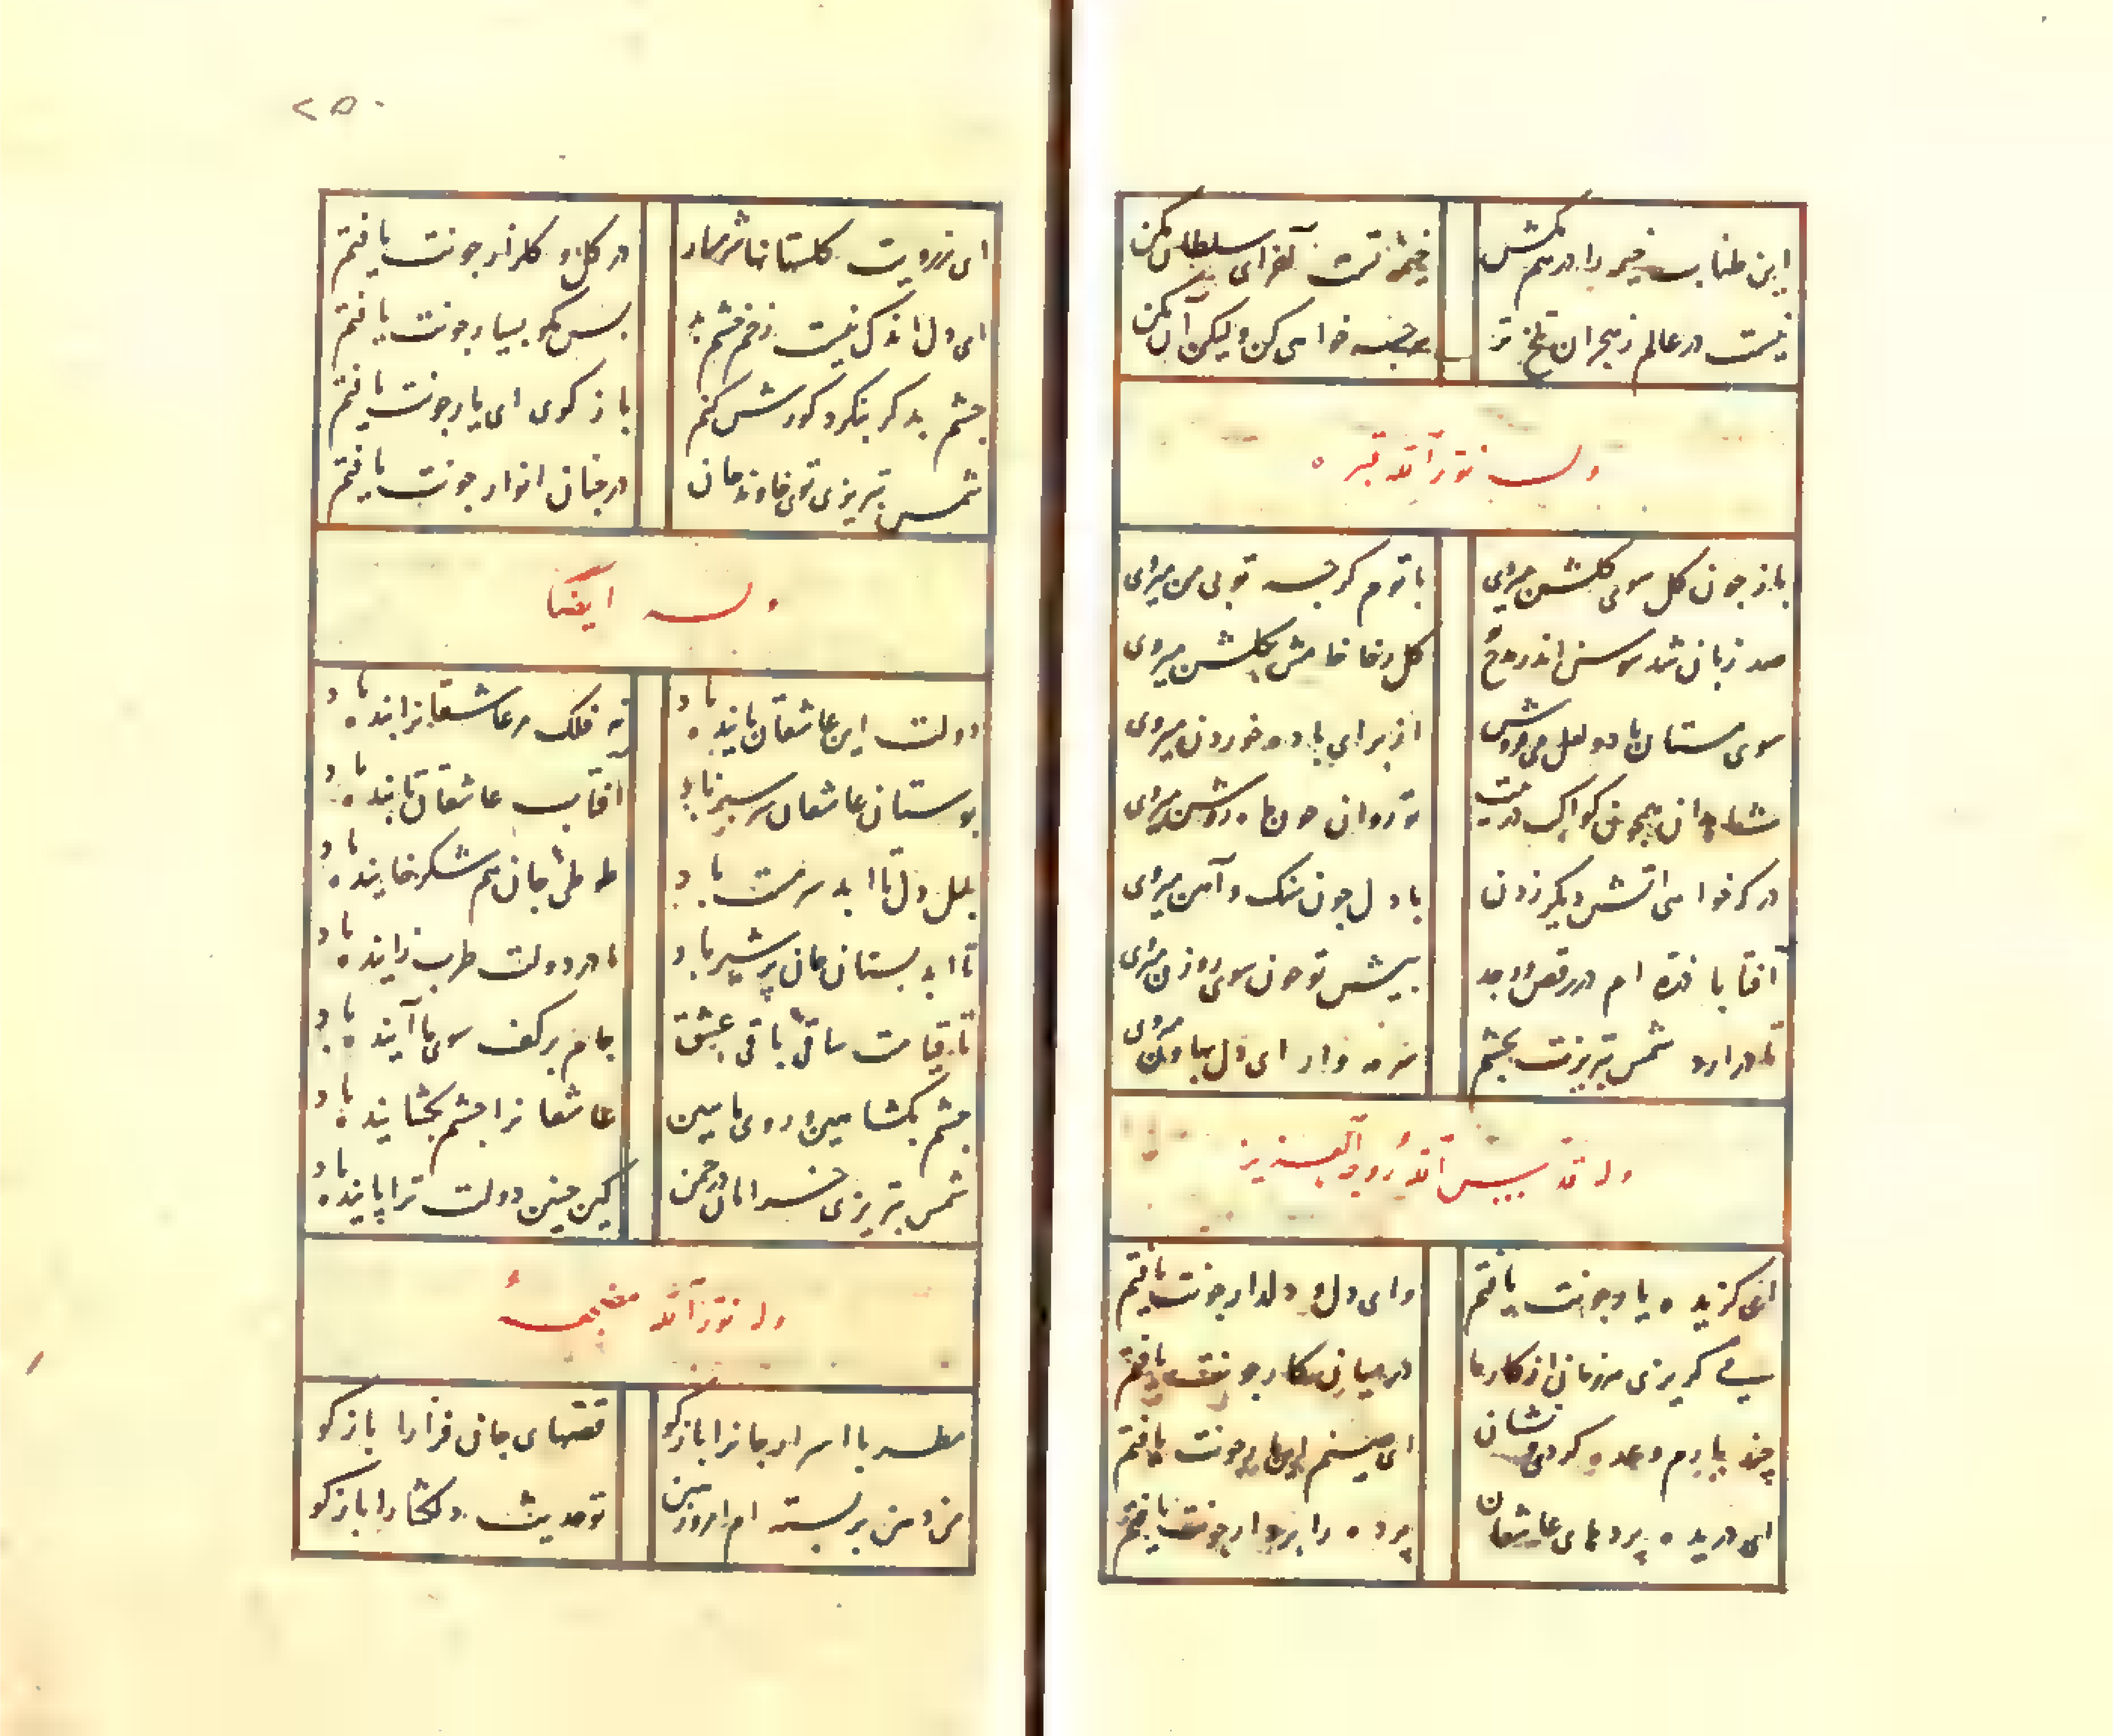 این طناب خیمه را در هم مکش
خیمه تست آخر ای سلطان مکن
نیست در عالم ز هجران تلخ تر
هرچه خواهی کن ولیکن آن مکن
وله نور الله قبره
باز چون کل سوی کلشن میروی
با توم کرچه تو بی من میروی
صد زبان شد سوسن اندر مدح تو
کل رخا خامش بکلشن میروی
سوی مستان با دو لعل می فروش
از برای باده خوردن میروی
شاهدان همچون کواکب در پیت
تو روان چون ماه روشن میروی
در کر خواهی آتش دیکر زدن
با دل چون سنک و آهن میروی
آفتابا ذره ام در رقص و وجد
پیش تو چون سوی روزن میروی
تا درآرد شمس تبریزت بچشم
سرمه وار ای دل بهاون میروی
وله قدس الله روحه العزیز
ای کزیده یار چونت یافتم
وای دل و دلدار چونت یافتم
می کریزی هر زمان از کار ما
در میان کار چونت یافتم
چند بارم وعده کردی و نشان
ای صنم این بار چونت یافتم
ای دریده پردهای عاشقان
پرده را بردار چونت یافتم
۲۵۰
ای ز رویت کلستانها شرمسار
در کل و کلزار چونت یافتم
ای دل اندک نیست زخم چشم بد
پس مکو بسیار چونت یافتم
چشم بد کر بنکرد کورش کنم
باز کوی ای یار چونت یافتم
شمس تبریزی توی خاوند جان
در جنان انوار چونت یافتم
وله ایضا
دولت این عاشقان پاینده باد
نه فلک مر عاشقانرا بنده باد
بوستان عاشقان سرسبز باد
آفتاب عاشقان تابنده باد
بلبل دل تا ابد سرمست باد
طوطی جان هم شکرخاینده باد
تا ابد بستان جان پر شیر باد
مادر دولت طرب زاینده باد
تا قیامت ساقی باقی عشق
جام بر کف سوی ما آینده باد
چشم بکشا ببین و روی ما ببین
عاشقانرا چشم بخشاینده باد
شمس تبریزی خرامان در چمن
کین چنین دولت ترا پاینده باد
وله نور الله مضجعه
مطربا اسرار جانرا باز کو
قصهای جان فزا را باز کو
من دهن بربسته ام امروز ببین
تو حدیث دلکشا را باز کو